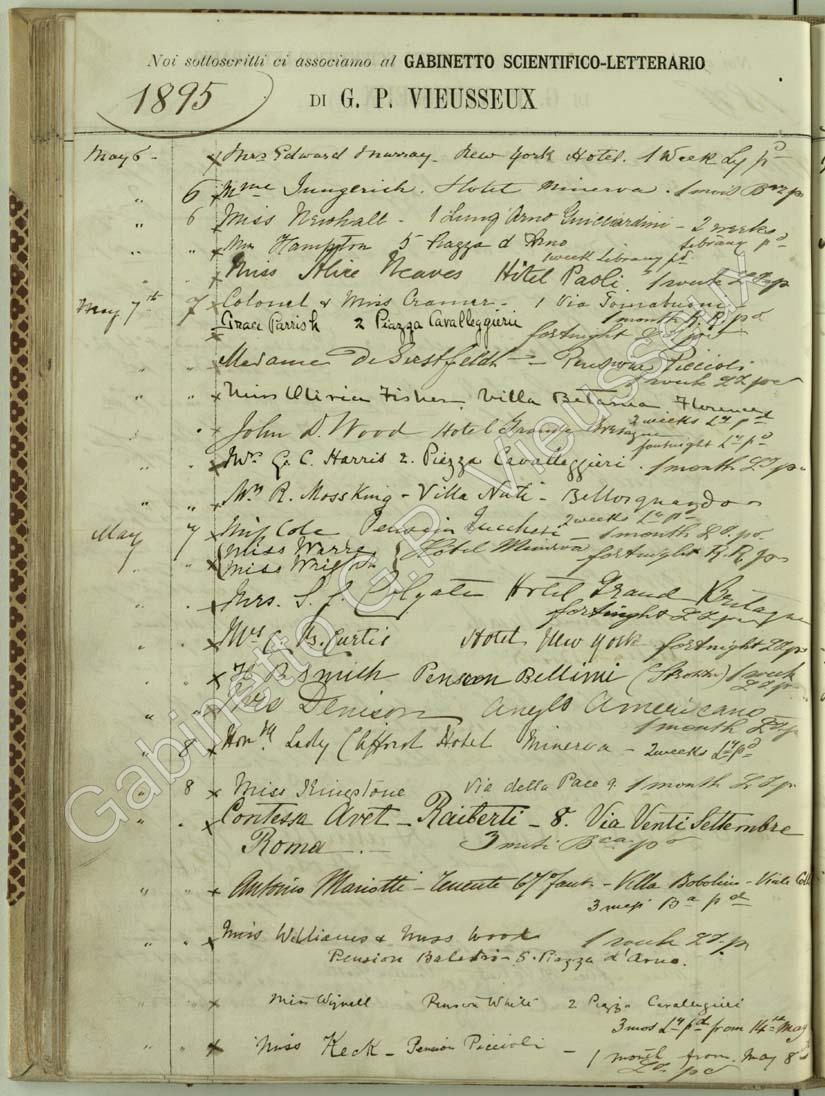 Noi sottoscritti ci associamo al GABINETTO SCIENTIFICO-LETTERARIO
1895
DI G. P. VIEUSSEUX
May 6 - x Mrs Edward Murray - New York Hotel. 1 Week Ly pd
" 6 x Mme Jungerich. Hotel Minerva. 1 mois
" 6 x Miss Newhall - 1 Lung'Arno Guicciardini - 2 weeks
Library pd
" " x Hampton 5 Piazza d'Arno
1 week Library pd
x Miss Alice Neaves Hôtel Paoli. 1 week
May 7th 7 x Colonel & Miss Cramer - 1 Via Tornabuoni
1 month R.R. pd
x Grace Parrish 2 Piazza Cavalleggieri
fortnight
" " x Madame de Gerstfeldt - Pensione Piccioli
1 week
" " x Miss Olivia Fisher, Villa Betania Florence
2 weeks Ly pd
" x John D. Wood Hotel Grande Bretagne
fortnight Ly pd
" x Mrs G. C. Harris 2. Piazza Cavalleggieri. 1 month
" " x R. Moss King - Villa Nuti - Bellosguardo
2 weeks Ly pd
May 7 x Miss Cole Pension Lucchesi - 1 month
" " x { Miss Warre
Miss Wright } Hôtel Minerva fortnight R.R. pd
" x Mrs. S. J. Colgate Hotel Grand Bretagne
fortnight
" x Mrs C. Curtis Hotel New York fortnight
" x B Smith Pension Bellini 1 week
" " x Mrs Denison Anglo Americano
1 month
" 8 x Honble Lady Clifford Hotel Minerva - 2 weeks Ly pd
" 8 x Miss Kingstone Via della Pace 9. 1 month
" x Contessa Avet - Raiberti - 8. Via Venti Settembre
Roma - 3 pd
" " x Antonio Mariotti - Tenente 67 Fant. - Villa Bobolino - Viale
3 mesi Ba pd
" " x Miss Williams & Miss Wood 1 week
Pension 5. Piazza d'Arno.
" " x Miss Wynell Pension White 2 Piazza Cavalleggieri
3 mos Ly pd from 14th May
" " x Miss Keck - Pension Piccioli - 1 month from May 8
pd
Gabinetto G.P. Vieusseux